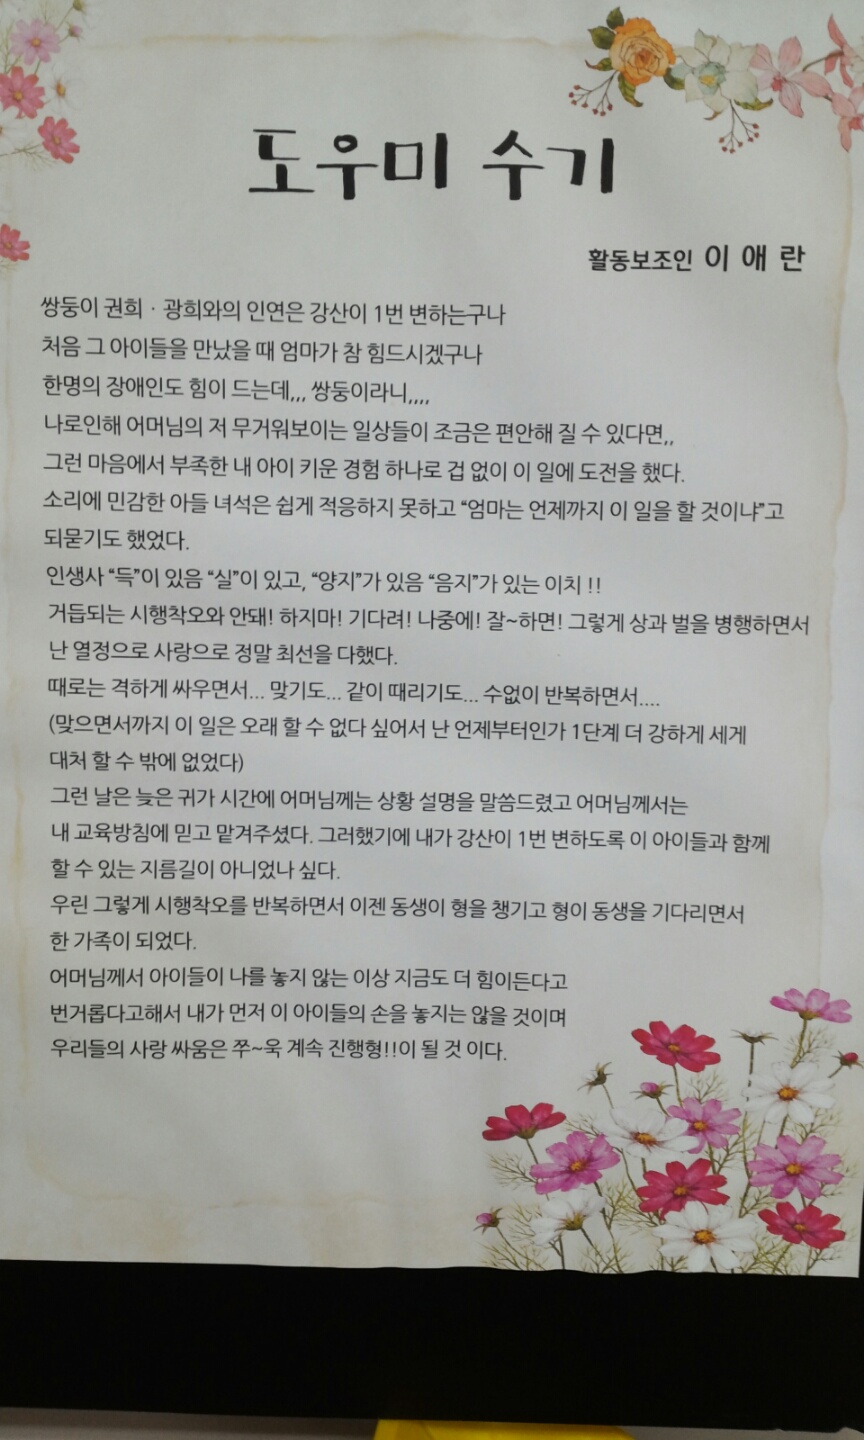 도우미 수기
활동보조인 이 애 란
쌍둥이 권희 · 광희와의 인연은 강산이 1번 변하는구나
처음 그 아이들을 만났을 때 엄마가 참 힘드시겠구나
한명의 장애인도 힘이 드는데,,, 쌍둥이라니,,,,
나로인해 어머님의 저 무거워보이는 일상들이 조금은 편안해 질 수 있다면,,
그런 마음에서 부족한 내 아이 키운 경험 하나로 겁 없이 이 일에 도전을 했다.
소리에 민감한 아들 녀석은 쉽게 적응하지 못하고 “엄마는 언제까지 이 일을 할 것이냐”고
되묻기도 했었다.
인생사 “득”이 있음 “실”이 있고, “양지”가 있음 “음지”가 있는 이치 !!
거듭되는 시행착오와 안돼! 하지마! 기다려! 나중에! 잘~하면! 그렇게 상과 벌을 병행하면서
난 열정으로 사랑으로 정말 최선을 다했다.
때로는 격하게 싸우면서... 맞기도... 같이 때리기도... 수없이 반복하면서....
(맞으면서까지 이 일은 오래 할 수 없다 싶어서 난 언제부터인가 1단계 더 강하게 세게
대처 할 수 밖에 없었다)
그런 날은 늦은 귀가 시간에 어머님께는 상황 설명을 말씀드렸고 어머님께서는
내 교육방침에 믿고 맡겨주셨다. 그러했기에 내가 강산이 1번 변하도록 이 아이들과 함께
할 수 있는 지름길이 아니었나 싶다.
우린 그렇게 시행착오를 반복하면서 이젠 동생이 형을 챙기고 형이 동생을 기다리면서
한 가족이 되었다.
어머님께서 아이들이 나를 놓지 않는 이상 지금도 더 힘이든다고
번거롭다고해서 내가 먼저 이 아이들의 손을 놓지는 않을 것이며
우리들의 사랑 싸움은 쭈~욱 계속 진행형!!이 될 것 이다.